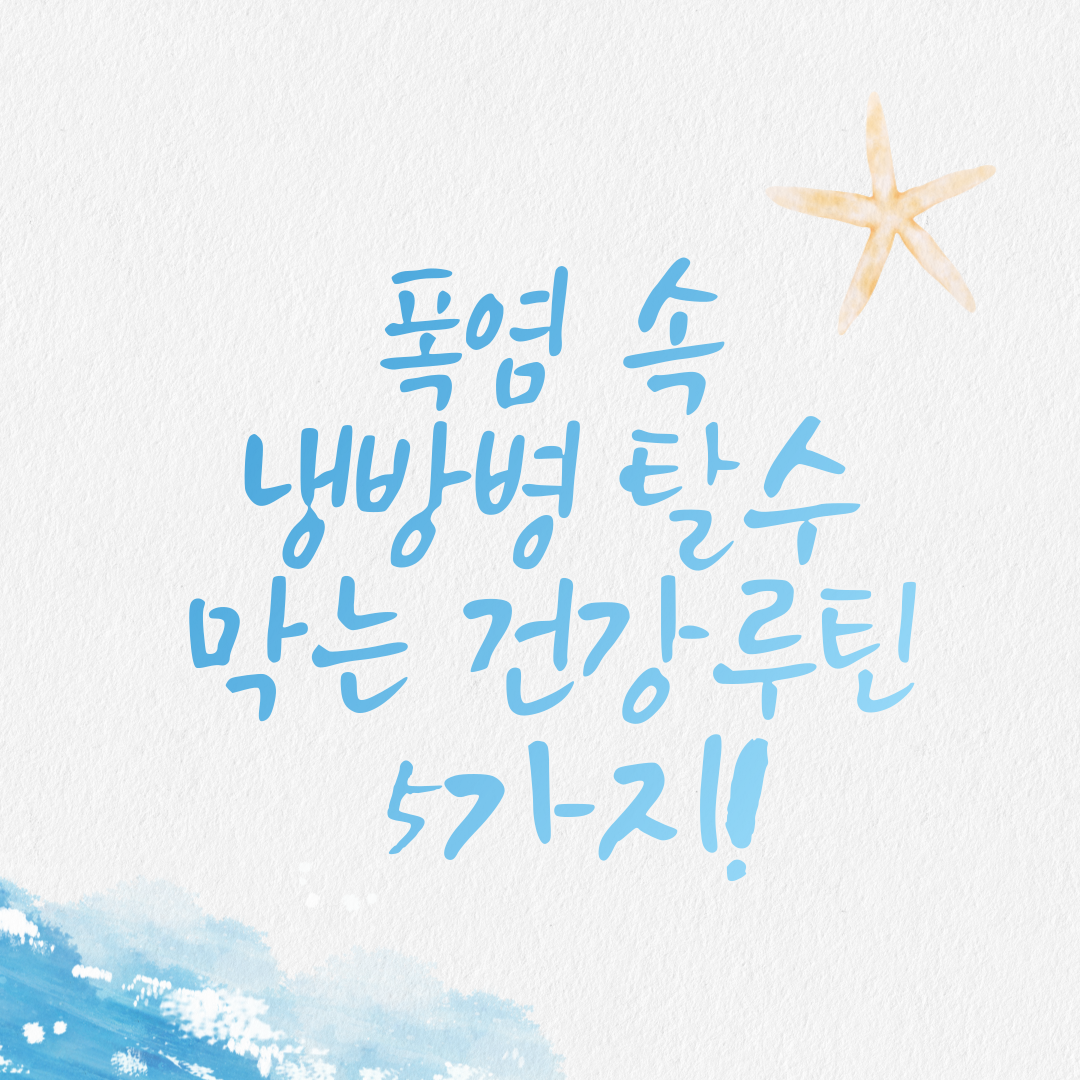 폭염 속
냉방병 탈수
막는 건강루틴
5가지!